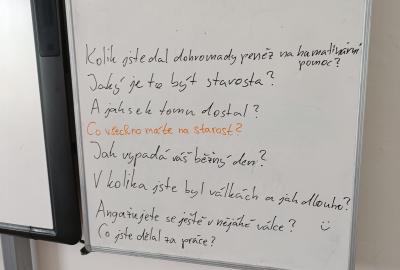 Kolik jste dal dohromady peněz na hamatitární
pomoc?
Jaký je to být starosta?
A jak se k tomu dostal?
Co všechno máte na starost?
Jak vypadá váš běžný den?
V kolika jste byl válkách a jak dlouho?
Angažujete se ještě v nějaké válce? :)
Co jste dělal za práce?